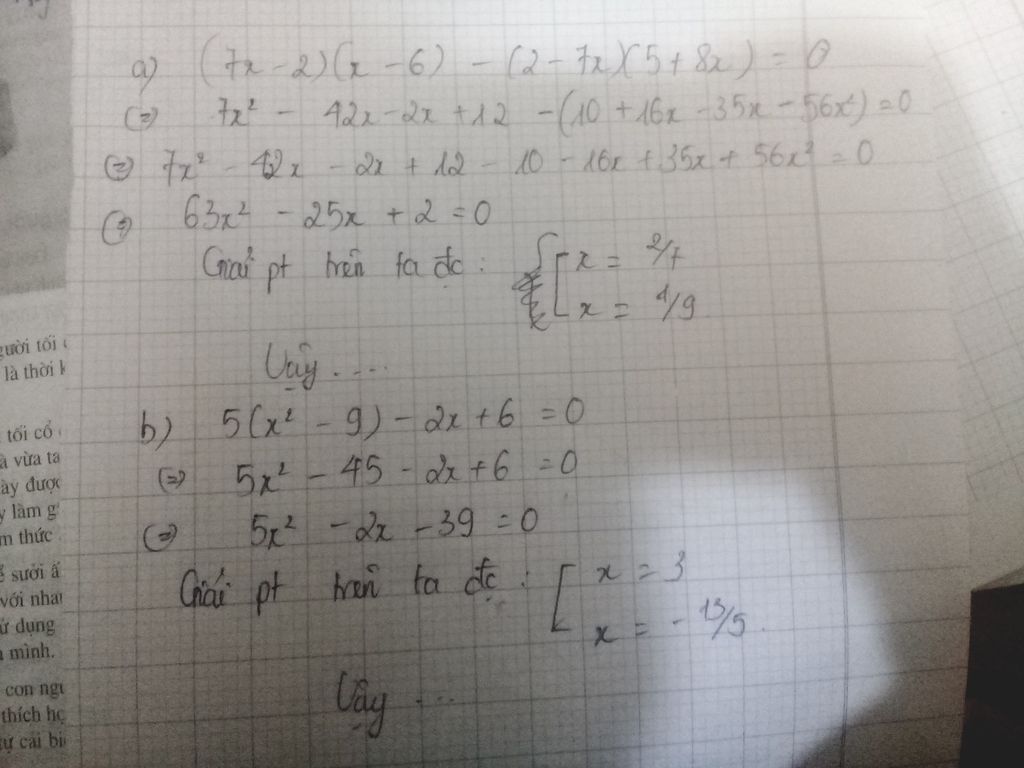 a) (7x - 2)(x - 6) - (2 - 7x)(5 + 8x) = 0
(=) 7x² - 42x - 2x + 12 - (10 + 16x - 35x - 56x²) = 0
(=) 7x² - 42x - 2x + 12 - 10 - 16x + 35x + 56x² = 0
(=) 63x² - 25x + 2 = 0
Giải pt trên ta đc : [ x = 2/7
x = 1/9
Vậy ....
b) 5(x² - 9) - 2x + 6 = 0
(=) 5x² - 45 - 2x + 6 = 0
(=) 5x² - 2x - 39 = 0
Giải pt trên ta đc : [ x = 3
x = - 13/5.
Vậy ...
gười tối
là thời
tối cổ
à vừa ta
ày được
y làm g
m thức
ế sưởi ấ
với nhau
ử dụng
mình.
con ngư
thích họ
tự cải biế